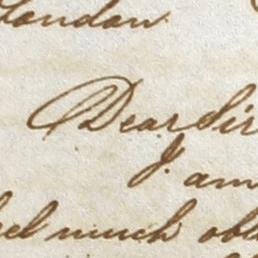 London
Dear Sir
I am
feel much obl